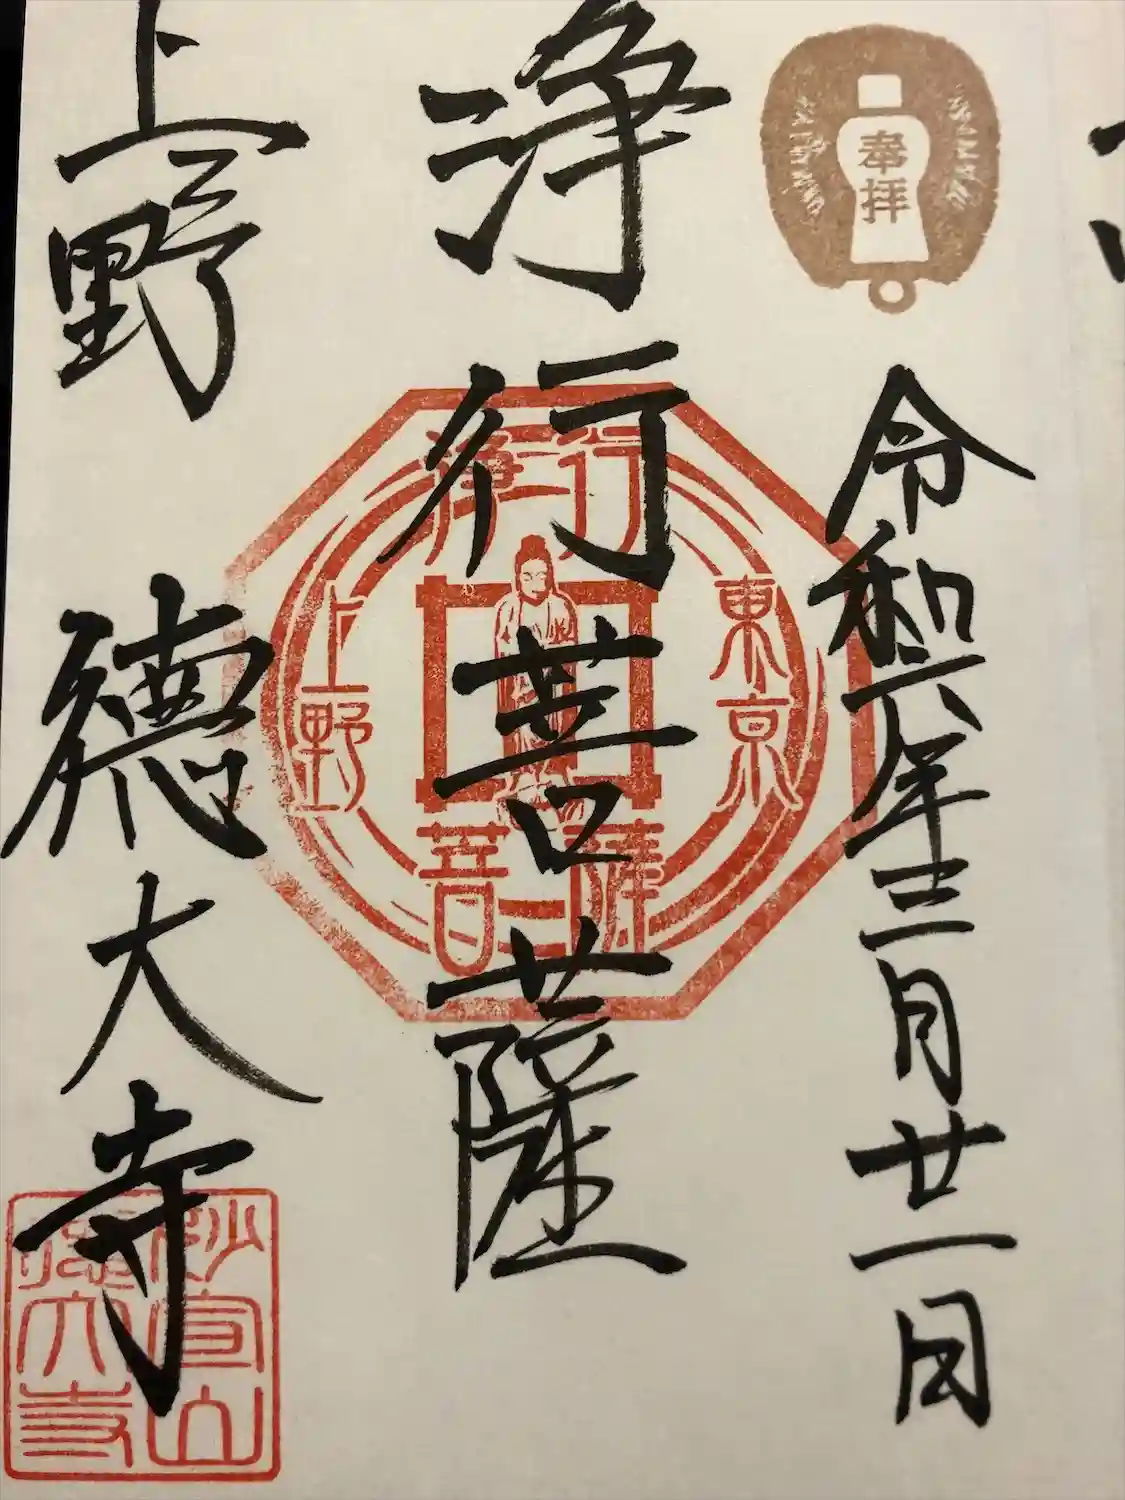 奉拝
令和六年三月廿一日
浄行菩薩
浄行
東京
上野
菩薩
上野 徳大寺
妙宣山
徳大寺